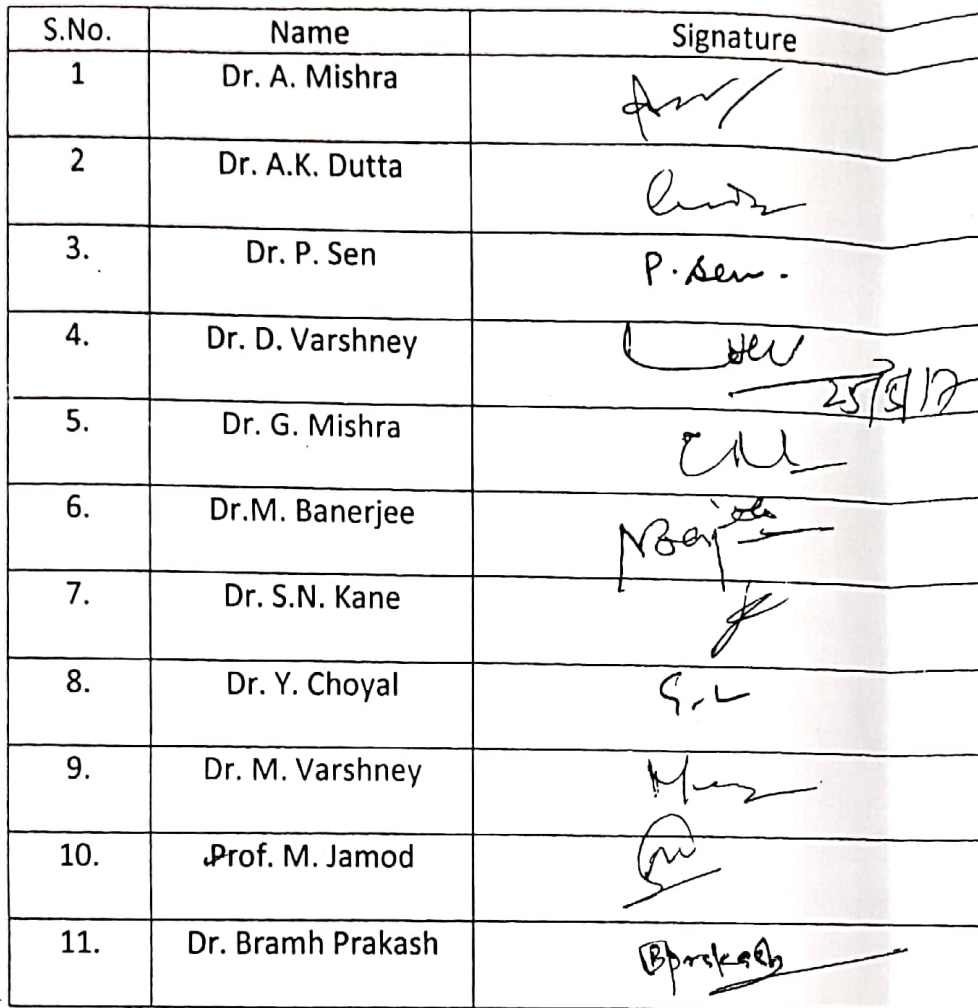 S.No. Name Signature
1 Dr. A. Mishra
2 Dr. A.K. Dutta
3. Dr. P. Sen P. Sen.
4. Dr. D. Varshney
25/5/17
5. Dr. G. Mishra
6. Dr.M. Banerjee
7. Dr. S.N. Kane
8. Dr. Y. Choyal
9. Dr. M. Varshney
10. Prof. M. Jamod
11. Dr. Bramh Prakash Bprakash